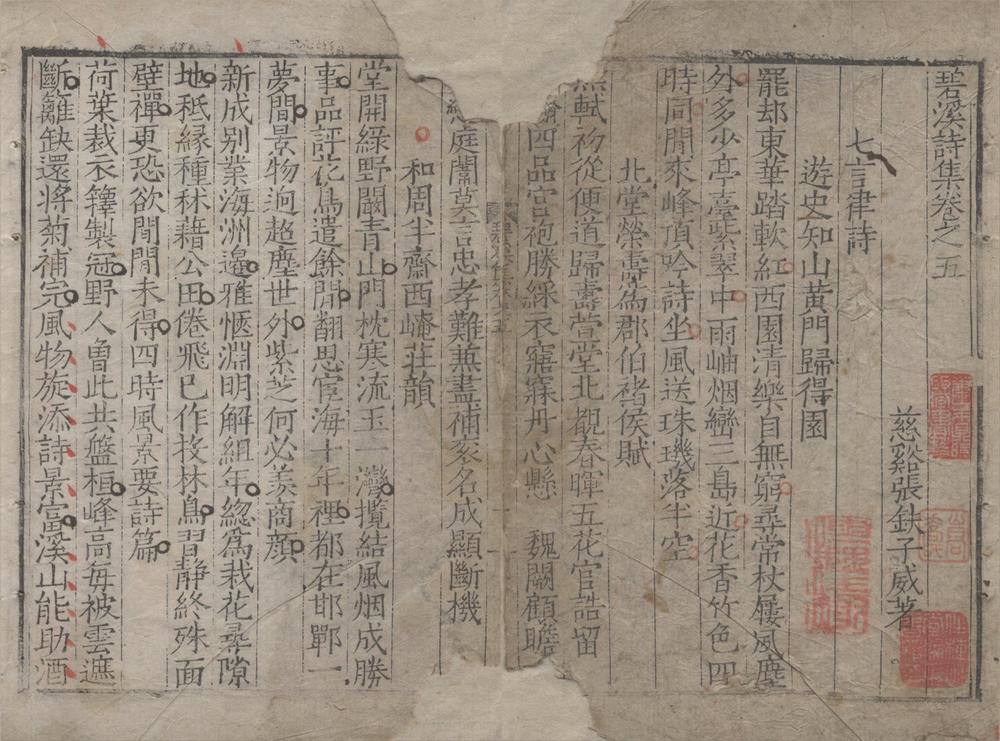 碧溪詩集卷之五
慈谿張鈇子威著
七言律詩
遊史知山黃門歸得園
罷却東華踏軟紅西園清樂自無窮尋常杖屨風塵
外多少亭臺紫翠中雨岫烟巒三島近花香竹色四
時同閒來峰頂吟詩坐風送珠璣落半空
北堂榮壽爲郡伯褚侯賦
賦初從便道歸壽萱堂北觀春暉五花官誥留
四品宮袍勝綵衣寤寐丹心懸魏闕顧瞻
庭闈莫言忠孝難兼盡補袞名成顯斷機
和周半齋西崦莊韻
堂開綠野闢青山門枕寒流玉一灣攬結風烟成勝
事品評花鳥遣餘閒翻思宦海十年裡都在邯鄲一
夢間景物迥超塵世外紫芝何必羨商顔
新成别業海洲邊雅愜淵明解組年緫爲栽花尋隙
地秪緣種秫藉公田倦飛已作投林鳥習靜終殊面
壁禪更恐欲閒閒未得四時風景要詩篇
荷葉裁衣籜製冠野人曾此共盤桓峰高每被雲遮
斷籬缺還將菊補完風物旋添詩景富溪山能助酒